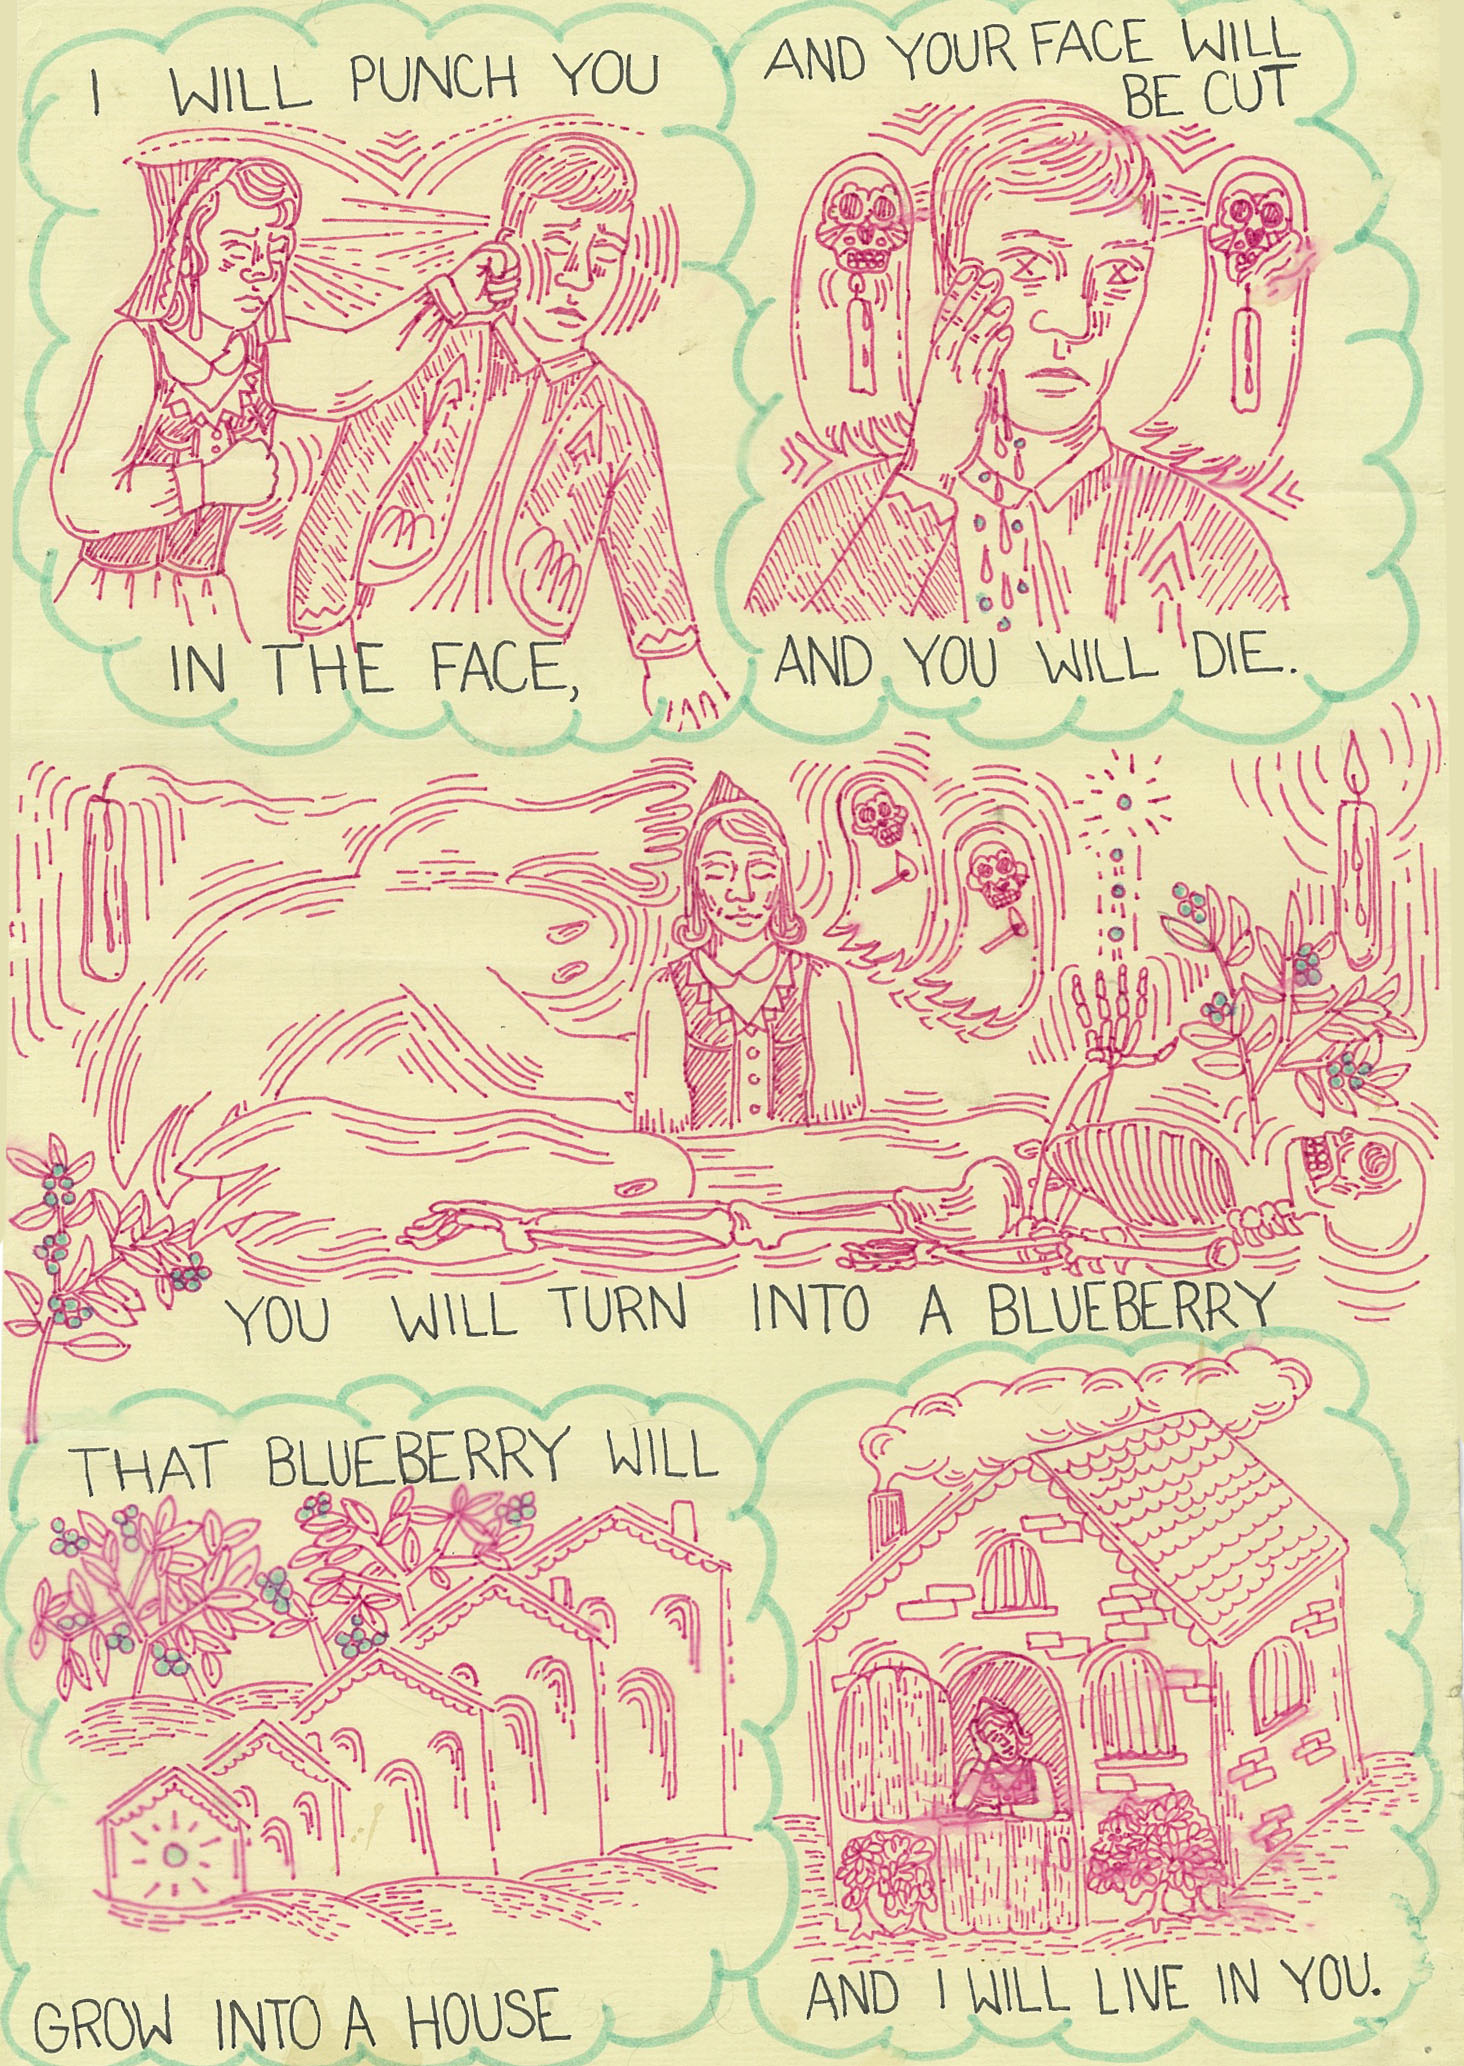 I WILL PUNCH YOU
IN THE FACE,
AND YOUR FACE WILL
BE CUT
AND YOU WILL DIE.
YOU WILL TURN INTO A BLUEBERRY
THAT BLUEBERRY WILL
GROW INTO A HOUSE
AND I WILL LIVE IN YOU.